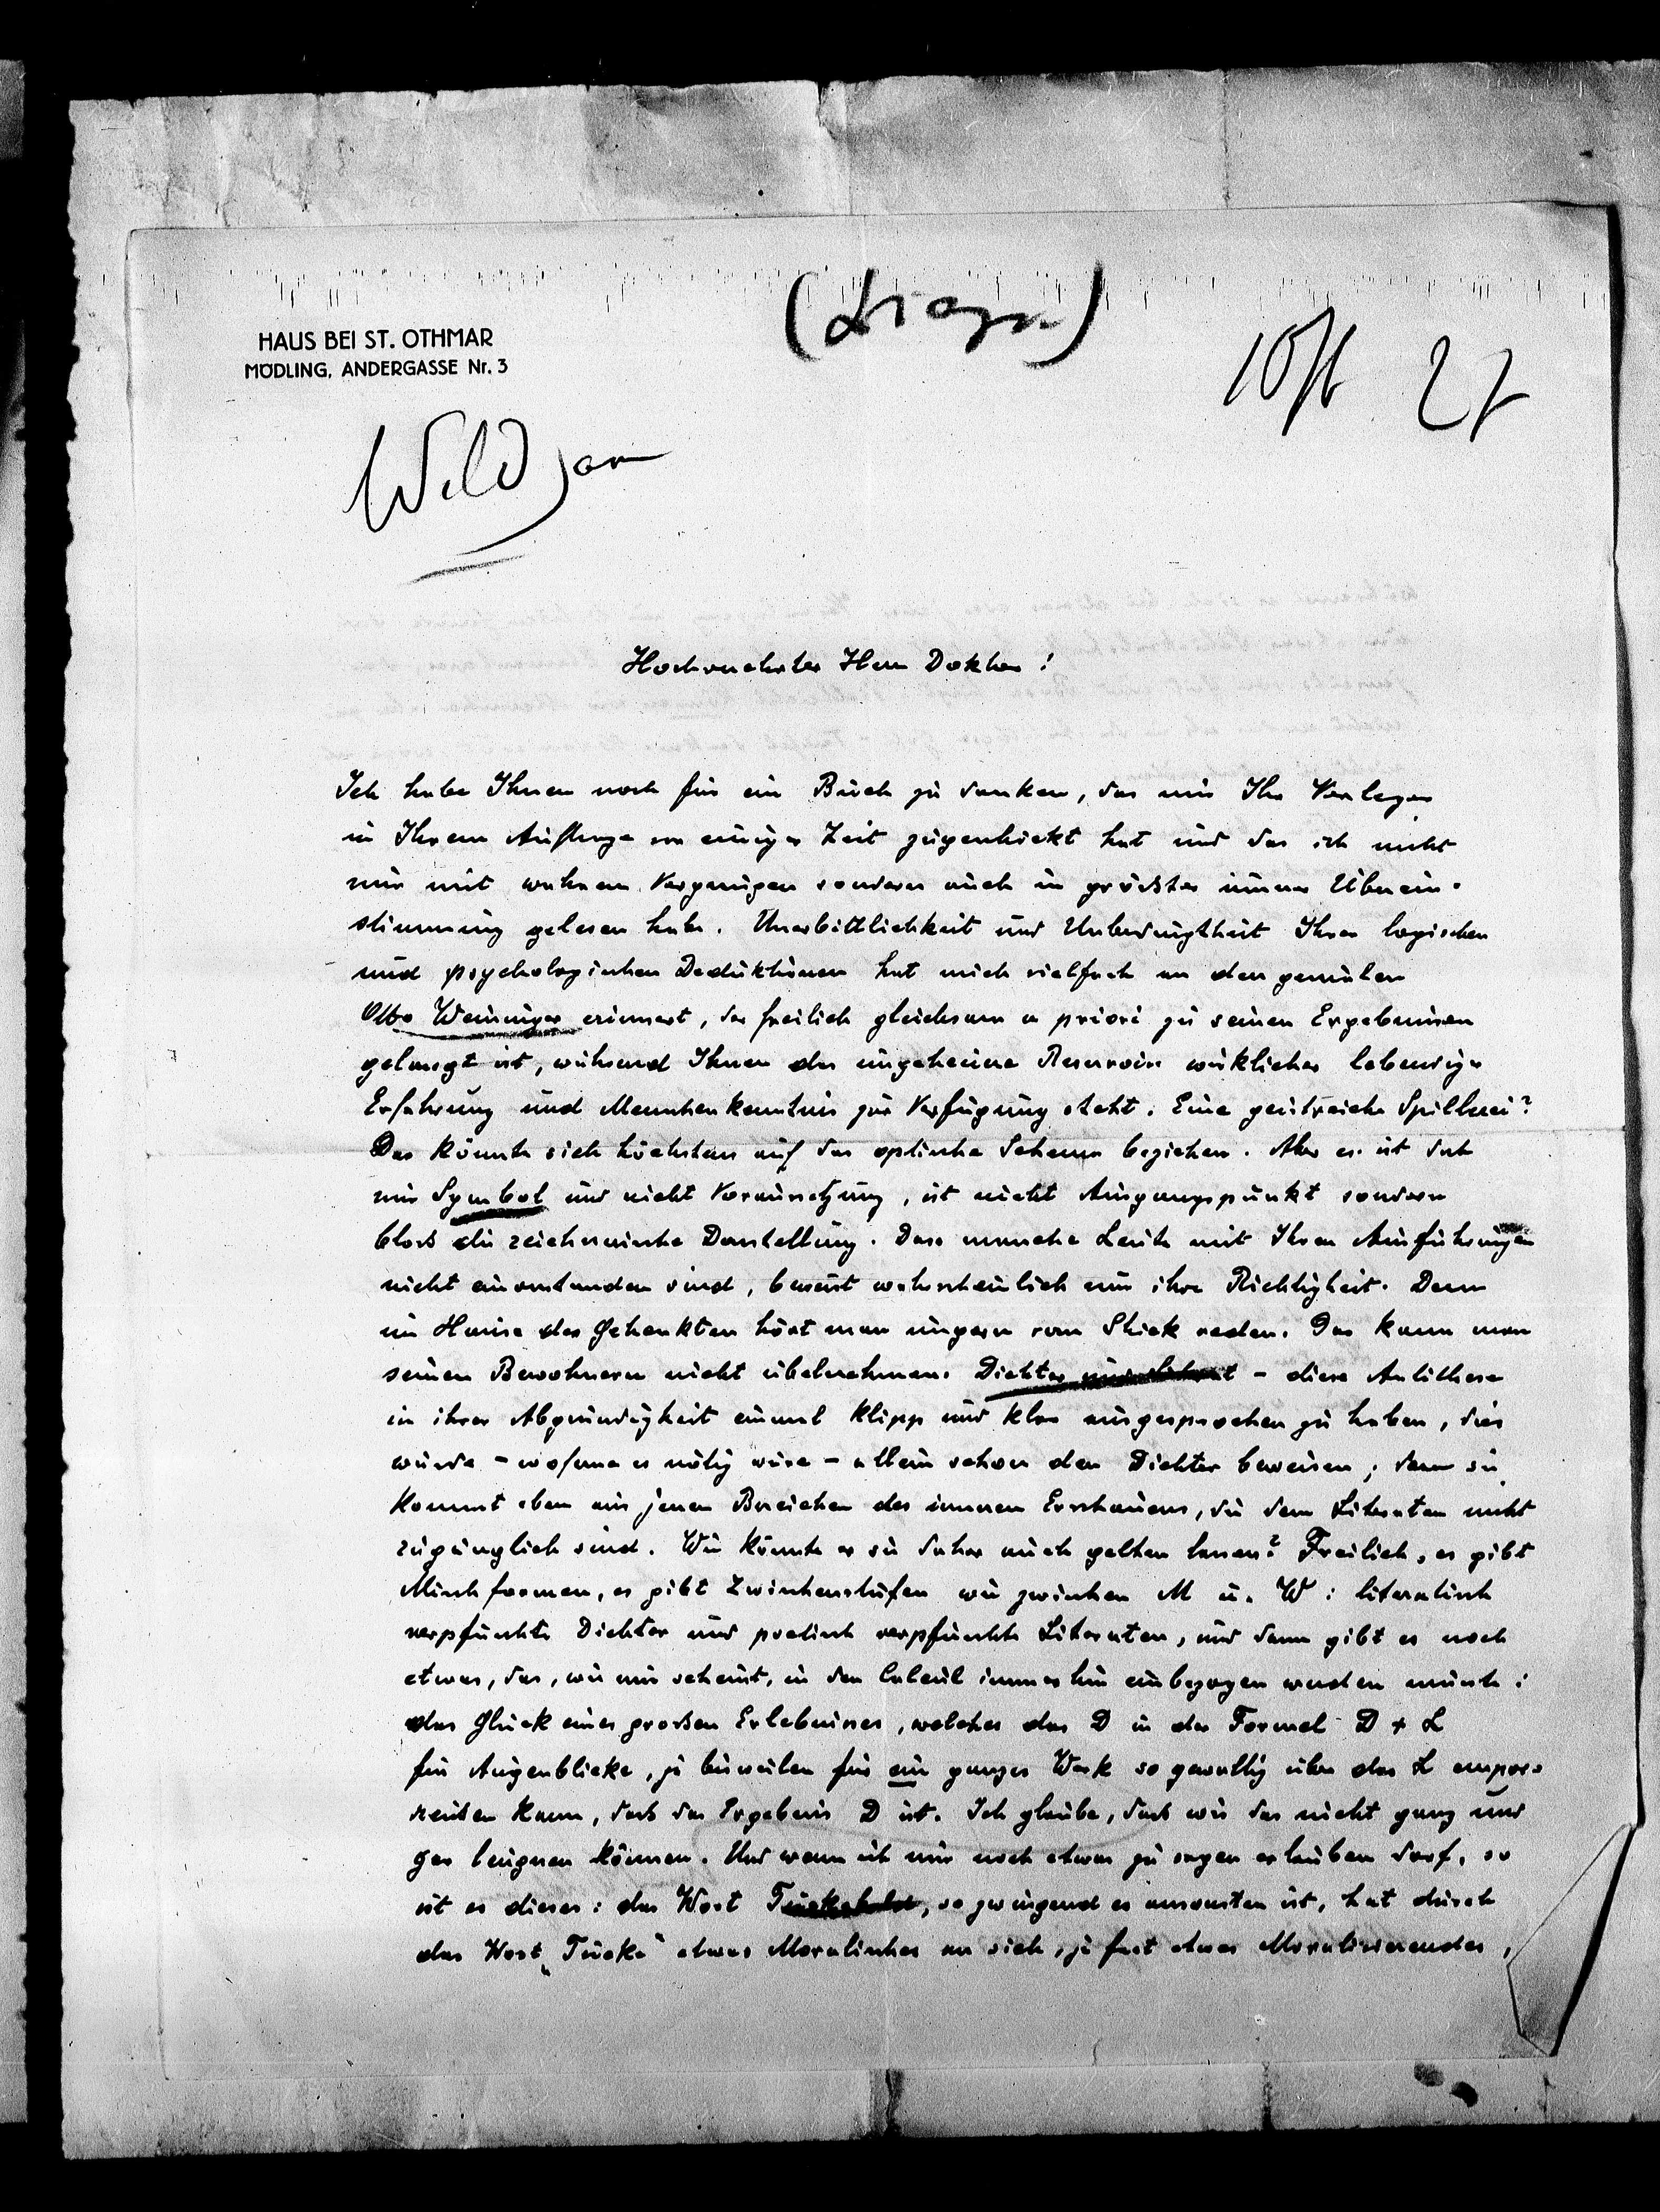 (Diagr)
HAUS BEI ST. OTHMAR
MÖDLING, ANDERGASSE Nr. 3
10/6 27
Wildgans
Hochverehrter Herr Doktor!
Ich habe Ihnen noch für ein Buch zu danken, das mir Ihr Verleger
in Ihrem Auftrage vor einiger Zeit zugeschickt hat und das ich nicht
nur mit wahrem Vergnügen sondern auch in grösster innerer Überein-
stimmung gelesen habe. Unerbittlichkeit und Unbedingtheit Ihrer logischen
und psychologischen Deduktionen hat mich vielfach an den genialen
Otto Weininger erinnert, der freilich gleichsam a priori zu seinen Ergebnissen
gelangt ist, während Ihnen das ungeheure Reservoir wirklicher lebendiger
Erfahrung und Menschenkenntnis zur Verfügung steht. Eine geistreiche Spielerei?
Das könnte sich höchstens auf das optische Schema beziehen. Aber es ist doch
nur Symbol und nicht Voraussetzung, ist nicht Ausgangspunkt sondern
bloss die zeichnerische Darstellung. Dass manche Leute mit Ihren Ausführungen
nicht einverstanden sind, beweist wahrscheinlich nur ihre Richtigkeit. Denn
im Hause des Gehenkten hört man ungern vom Strick reden. Das kann man
seinen Bewohnern nicht übelnehmen. Dichter und Literat – diese Antithese
in ihrer Abgründigkeit einmal klipp und klar ausgesprochen zu haben, dies
würde – wofern es nötig wäre – allein schon den Dichter beweisen; denn sie
kommt eben aus jenen Bereichen des inneren Erschauens, die dem Literaten nicht
zugänglich sind. Wie könnte er sie daher auch gelten lassen? Freilich, es gibt
Mischformen, es gibt Zwischenstufen wie zwischen M u. W: literatisch
verpfuschte Dichter und poetisch verpfuschte Literaten, und dann gibt es noch
etwas, das, wie mir scheint, in den Calcül immerhin einbezogen werden müsste:
das Glück eines grossen Erlebnisses, welches das D in der Formel D + L
für Augenblicke, ja bisweilen für ein ganzes Werk so gewaltig über das L empor-
reissen kann, dass das Ergebnis D ist. Ich glaube, dass wir das nicht ganz und
gar leugnen können. Und wenn ich mir noch etwas zu sagen erlauben darf, so
ist es dieses: das Wort Tückebold, so zwingend es ansonsten ist, hat durch
das Wort „Tücke" etwas Moralisches an sich, ja fast etwas Moralisierendes,